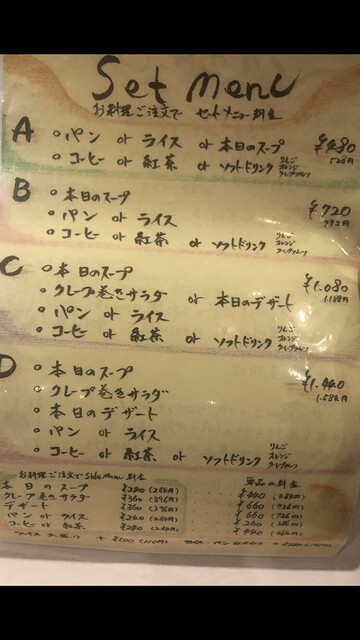 Set Menu
お料理ご注文で セットメニュー料金
A
○パン or ライス or 本日のスープ ¥480
○コーヒー or 紅茶 or ソフトドリンク りんご オレンジ グレープフルーツ 528円
B
○本日のスープ ¥720
○パン or ライス 792円
○コーヒー or 紅茶 or ソフトドリンク りんご オレンジ グレープフルーツ
C
○本日のスープ ¥1.080
○クレープ巻きサラダ or 本日のデザート 1.188円
○パン or ライス
○コーヒー or 紅茶 or ソフトドリンク りんご オレンジ グレープフルーツ
D
○本日のスープ ¥1.440
○クレープ巻きサラダ 1.584円
○本日のデザート
○パン or ライス
○コーヒー or 紅茶 or ソフトドリンク りんご オレンジ グレープフルーツ
お料理ご注文で Side Menu 料金 単品の料金
本日のスープ ¥240 (264円) ¥440 (484円)
クレープ巻きサラダ ¥360 (396円) ¥660 (726円)
デザート ¥360 (396円) ¥660 (726円)
パン or ライス ¥240 (264円) ¥260 (286円)
コーヒー or 紅茶 ¥240 (264円) ¥440 (484円)
ライス 大盛り + ¥100 (110円)